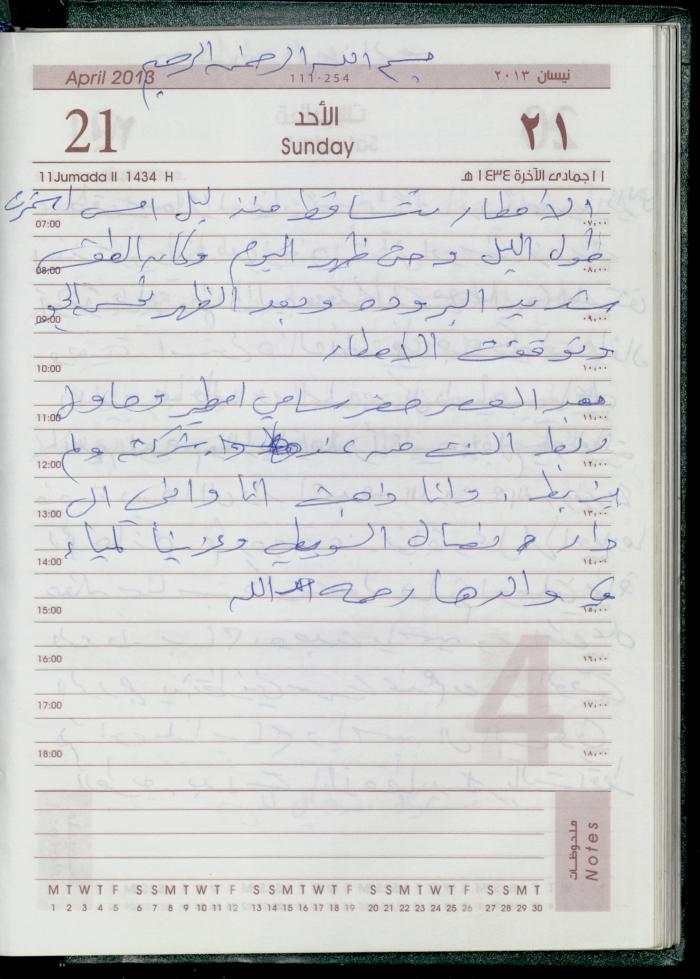 بسم الله الرحمن الرحيم
April 2013 111-254 نيسان ٢٠١٣
21 الأحد ٢١
Sunday
11 Jumada II 1434 H ١١ جمادى الآخرة ١٤٣٤ هـ
الامطار تتساقط منذ ليل امس استمرت
07:00 ٠٧،٠٠
طول الليل وحتى ظهر اليوم وكان الطقس
08:00 ٠٨،٠٠
شديد البرودة وبعد الظهر تحسن الجو
09:00 ٠٩،٠٠
وتوقفت الامطار
10:00 ١٠،٠٠
بعد العصر حضر سامي امطير وحاول
11:00 ١١،٠٠
ربط النت من عند شركة ولم
12:00 ١٢،٠٠
يضبط، وانا ذهبت انا الى
13:00 ١٣،٠٠
دار نضال وعزينا لمياء
14:00 ١٤،٠٠
في والدها رحمه الله
15:00 ١٥،٠٠
16:00 ١٦،٠٠
17:00 ١٧،٠٠
18:00 ١٨،٠٠
4
ملحوظات
Notes
M T W T F S S M T W T F S S M T W T F S S M T W T F S S M T
1 2 3 4 5 6 7 8 9 10 11 12 13 14 15 16 17 18 19 20 21 22 23 24 25 26 27 28 29 30